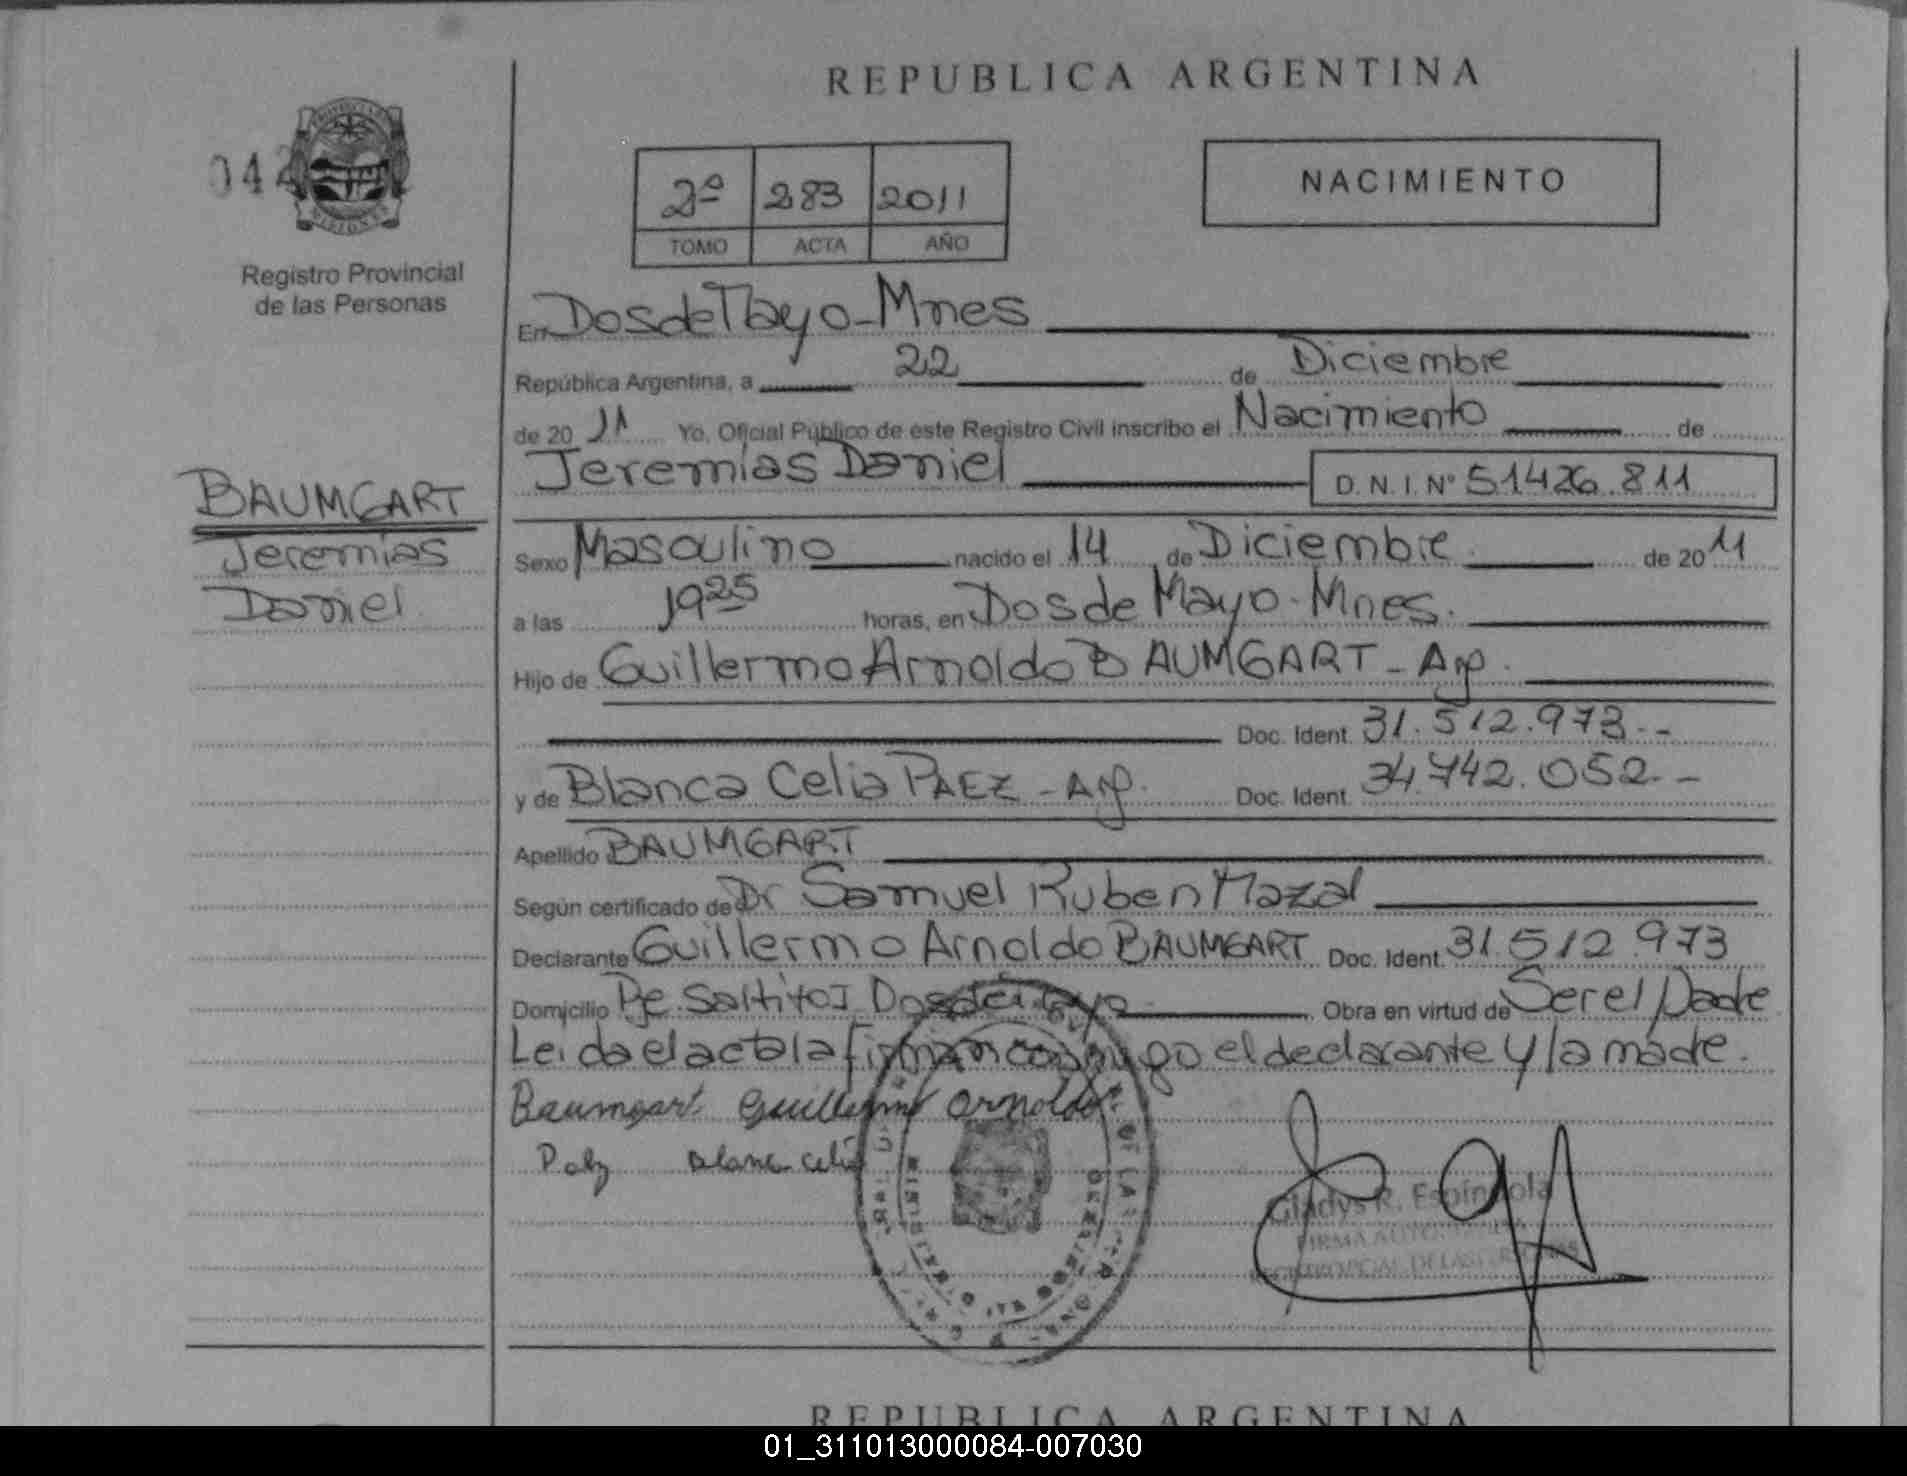 REPUBLICA ARGENTINA
042
PROVINCIA
MISIONES
Registro Provincial
de las Personas
2º 283 2011
TOMO ACTA AÑO
NACIMIENTO
En Dos de Mayo - Mnes
República Argentina, a 22 de Diciembre
de 20 11 Yo, Oficial Público de este Registro Civil inscribo el Nacimiento de
Jeremías Daniel D.N.I. Nº 51426.811
BAUMGART
Jeremias
Daniel
Sexo Masculino nacido el 14 de Diciembre de 2011
a las 19 25 horas, en Dos de Mayo - Mnes.
Hijo de Guillermo Arnoldo BAUMGART - Arg.
Doc. Ident. 31.512.973.-
y de Blanca Celia PAEZ - Arg. Doc. Ident. 34.742.052.-
Apellido BAUMGART
Según certificado de Dr Samuel Ruben Mazal
Declarante Guillermo Arnoldo BAUMGART Doc. Ident. 31.512.973
Domicilio Pje Saltito I Dos de Mayo Obra en virtud de Ser el Padre
Leida el acta la firman conmigo el declarante y la madre.
Baumgart Guillermo Arnoldo
Paez Blanca Celia
Gladys R. Espíndola
REPUBLICA ARGENTINA
01_311013000084-007030